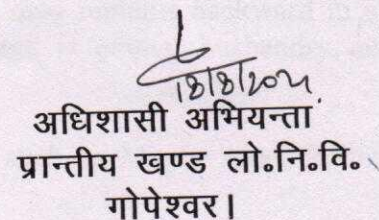 18/8/2021
अधिशासी अभियन्ता
प्रान्तीय खण्ड लो०नि०वि०
गोपेश्वर।